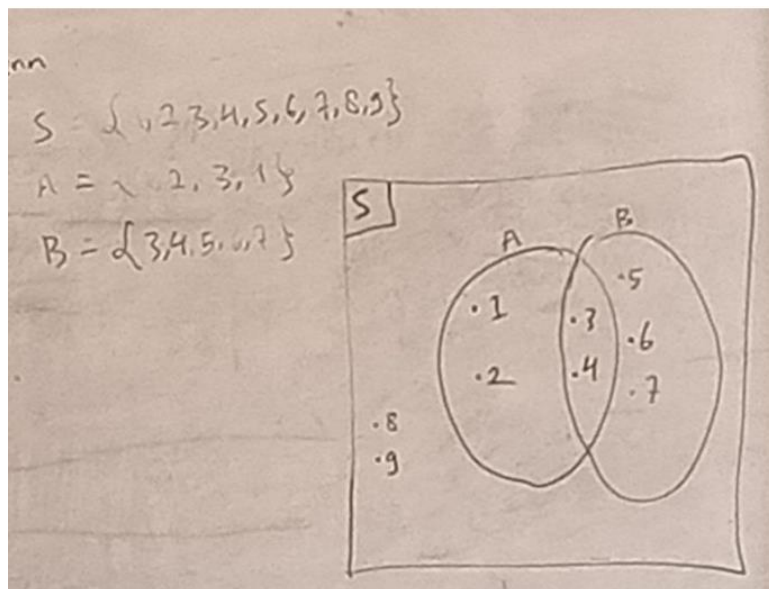 nn
S = { , 2 3, 4, 5, 6, 7, 8, 9}
A = 2, 3, }
B = {3,4,5, , 7}
S
A
B
. 1
. 2
. 3
. 4
. 5
. 6
. 7
. 8
. 9